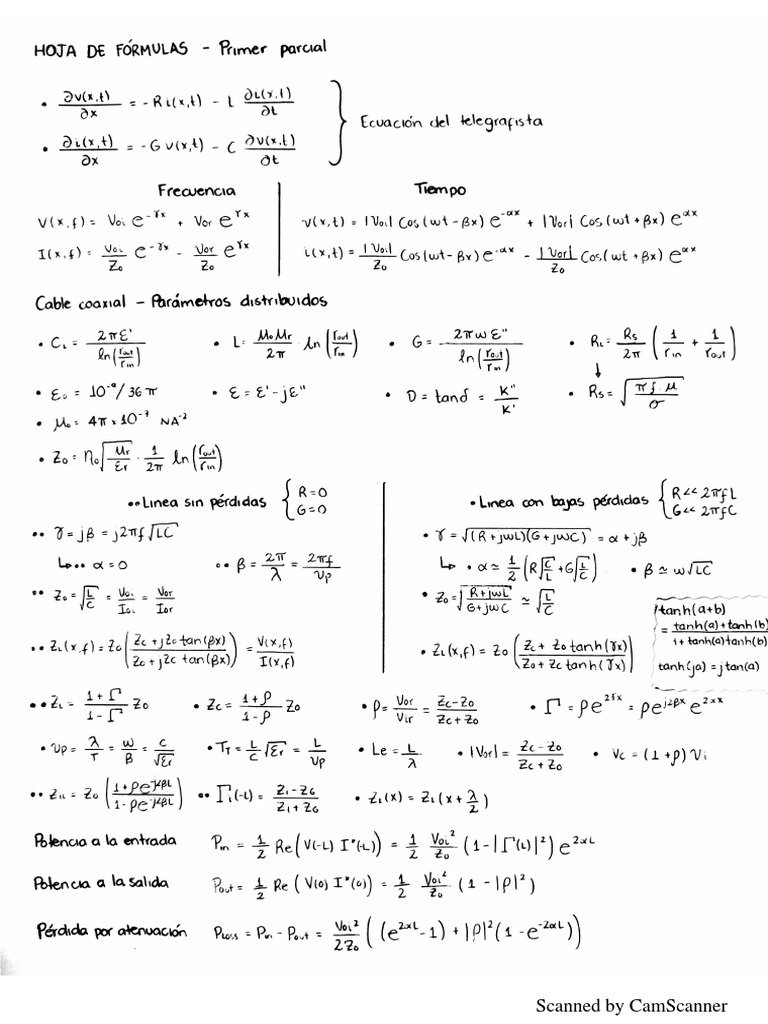 HOJA DE FÓRMULAS - Primer parcial
• ∂v(x,t)/∂x = -Ri(x,t) - L ∂i(x,t)/∂t
• ∂i(x,t)/∂x = -Gv(x,t) - C ∂v(x,t)/∂t
} Ecuación del telegrafista
Frecuencia
V(x,f) = Voi e^-γx + Vor e^γx
I(x,f) = Voi/Zo e^-γx - Vor/Zo e^γx
Tiempo
v(x,t) = |Voi| Cos(wt - βx) e^-αx + |Vor| Cos(wt + βx) e^αx
i(x,t) = |Voi|/Zo Cos(wt - βx) e^-αx - |Vor|/Zo Cos(wt + βx) e^αx
Cable coaxial - Parámetros distribuidos
• CL = 2πε'/ln(rout/rin) • L = MoMr/2π ln(rout/rin) • G = 2πwε''/ln(rout/rin) • RL = Rs/2π (1/rin + 1/rout)
• εo = 10^-9/36π • ε = ε' - jε'' • D = tanδ = K''/K' • Rs = √(πfμ/σ)
• Mo = 4π x 10^-7 NA^-2
• Zo = ηo √(Mr/εr) · 1/2π ln(rout/rin)
•• Linea sin pérdidas { R=0 G=0
•• γ = jβ = j2πf√LC
↳•• α = 0 •• β = 2π/λ = 2πf/vp
•• Zo = √(L/C) = Voi/Ioi = Vor/Ior
•• ZL(x,f) = Zo (Zc + jZo tan(βx)/Zo + jZc tan(βx)) = V(x,f)/I(x,f)
• Linea con bajas pérdidas { R<<2πfL G<<2πfC
• γ = √((R+jwL)(G+jwC)) = α + jβ
↳ • α ≃ 1/2 (R√(C/L) + G√(L/C)) • β ≃ w√LC
• Zo = √(R+jwL/G+jwC) ≃ √(L/C)
• ZL(x,f) = Zo (Zc + Zo tanh(γx)/Zo + Zc tanh(γx))
tanh(a+b)
= tanh(a)+tanh(b)/1+tanh(a)tanh(b)
tanh(ja) = jtan(a)
•• ZL = 1+Γ/1-Γ Zo • Zc = 1+ρ/1-ρ Zo • ρ = Vor/Vir = Zc-Zo/Zc+Zo • Γ = ρe^2γx = ρe^j2βx e^2αx
• vp = λ/T = w/β = c/√εr • TT = L/C √εr = L/vp • Le = L/λ • |Vor| = Zc-Zo/Zc+Zo • Vc = (1+ρ) Vi
•• Zo •• Γi(-L) = Zi-ZG/Zi+ZG • ZL(x) = ZL(x + λ/2)
Potencia a la entrada Pin = 1/2 Re(V(-L) I*(-L)) = 1/2 Voi²/Zo (1-|Γ(L)|²) e^2αL
Potencia a la salida Pout = 1/2 Re(V(0) I*(0)) = 1/2 Voi²/Zo (1-|ρ|²)
Pérdida por atenuación Ploss = Pin - Pout = Voi²/2Zo ((e^2αL - 1) + |ρ|²(1 - e^-2αL))
Scanned by CamScanner